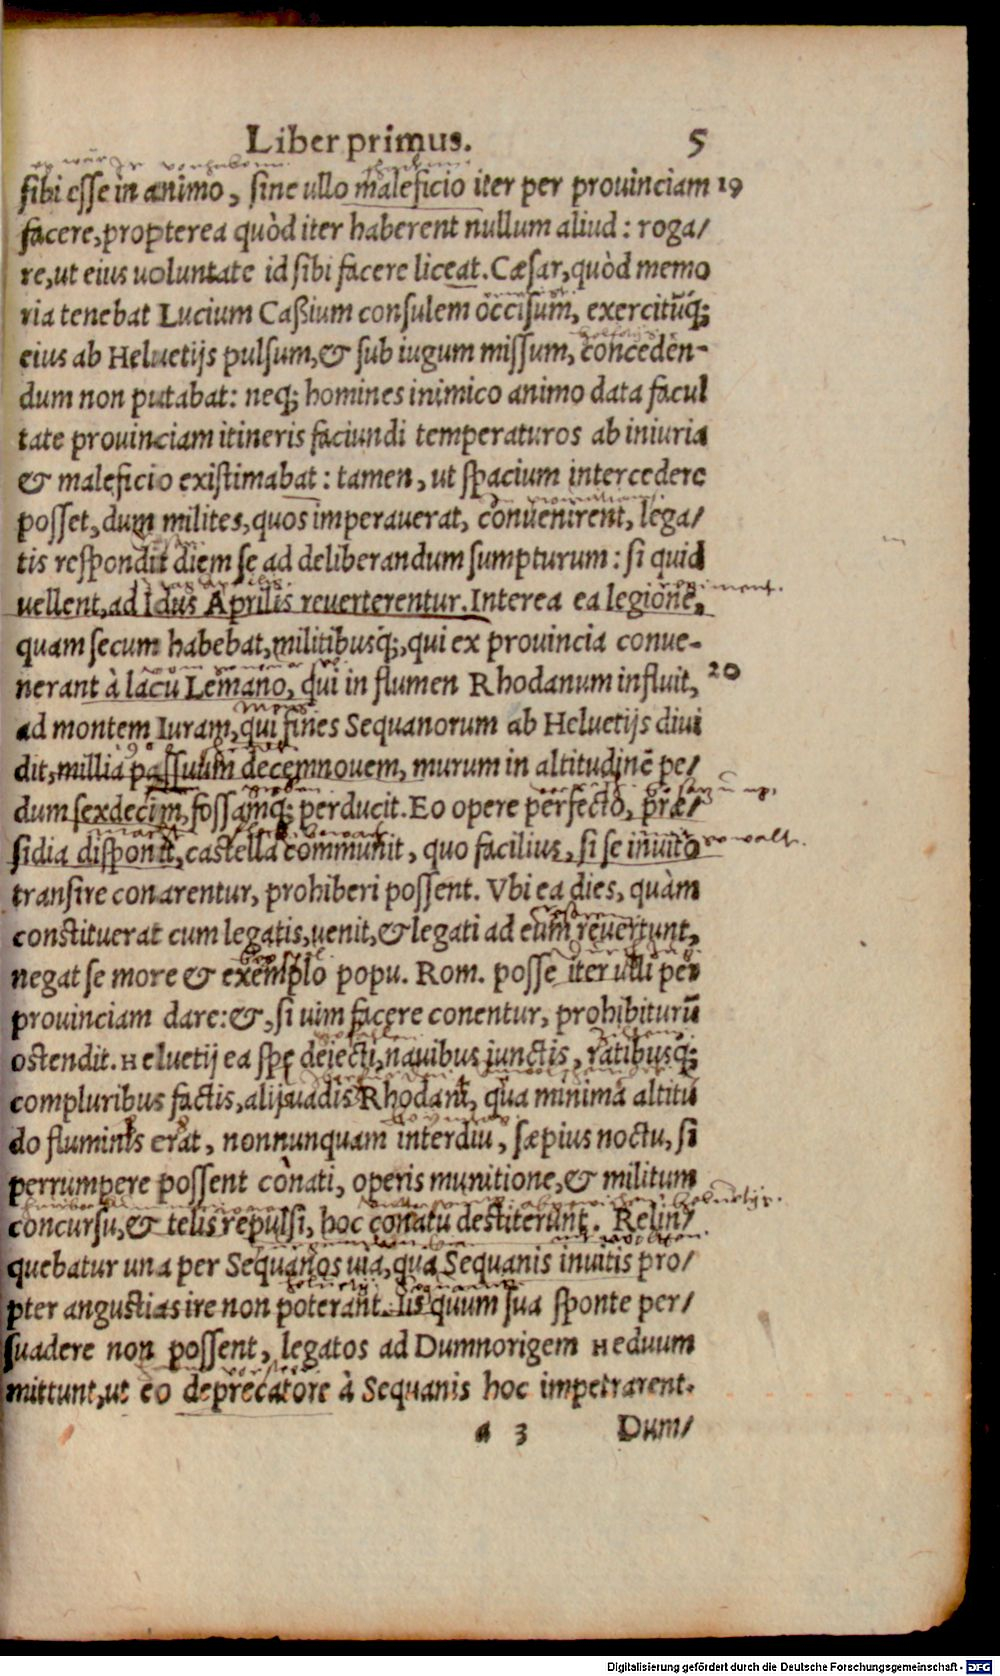 Liber primus. 5
sibi esse in animo, sine ullo maleficio iter per prouinciam 19
facere, propterea quòd iter haberent nullum aliud: roga/
re, ut eius uoluntate id sibi facere liceat. Cæsar, quòd memo
ria tenebat Lucium Caßium consulem occisum, exercitũq;
eius ab Heluetijs pulsum, & sub iugum missum, conceden-
dum non putabat: neq; homines inimico animo data facul
tate prouinciam itineris faciundi temperaturos ab iniuria
& maleficio existimabat: tamen, ut spacium intercedere
posset, dum milites, quos imperauerat, conuenirent, lega/
tis respondit diem se ad deliberandum sumpturum: si quid
uellent, ad Idus Aprilis reuerterentur. Interea ea legione,
quam secum habebat, militibusq;, qui ex prouincia conue-
nerant à lacu Lemano, qui in flumen Rhodanum influit, 20
ad montem Iuram, qui fines Sequanorum ab Heluetijs diui
dit, millia passuum decemnouem, murum in altitudinẽ pe/
dum sexdecim, fossamq; perducit. Eo opere perfecto, præ/
sidia disponit, castella communit, quo facilius, si se inuito
transire conarentur, prohiberi possent. Vbi ea dies, quàm
constituerat cum legatis, uenit, & legati ad eum reuertunt,
negat se more & exemplo popu. Rom. posse iter ulli per
prouinciam dare: &, si uim facere conentur, prohibiturũ
ostendit. Heluetij ea spe deiecti, nauibus junctis, ratibusq;
compluribus factis, alij uadis Rhodani, qua minima altitu
do fluminis erat, nonnunquam interdiu, sæpius noctu, si
perrumpere possent conati, operis munitione, & militum
concursu, & telis repulsi, hoc conatu destiterunt. Relin/
quebatur una per Sequanos uia, qua Sequanis inuitis pro/
pter angustias ire non poterant. Iis quum sua sponte per/
suadere non possent, legatos ad Dumnorigem Heduum
mittunt, ut eo deprecatore à Sequanis hoc impetrarent.
a 3 Dum/
Digitalisierung gefördert durch die Deutsche Forschungsgemeinschaft - DFG